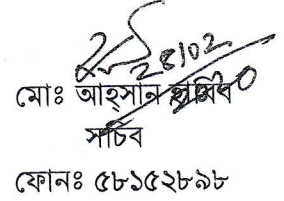 ২৪/০২
মোঃ আহ্সান হাবিব
সচিব
ফোনঃ ৫৮১৫২৮৯৮